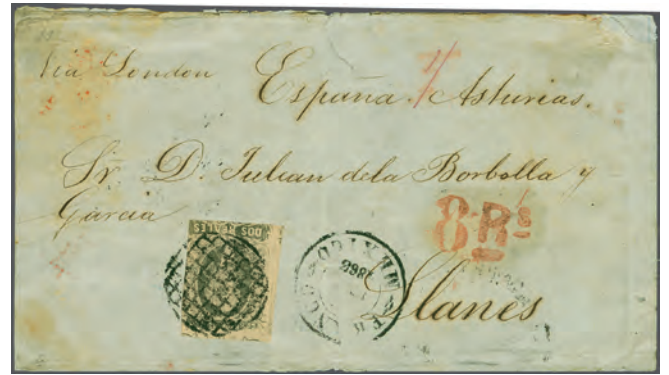 Via London España / Asturias.
Sr. D. Julian dela Borbolla y
Garcia
8 Rs
DOS REALES
MEXICO
Llanes